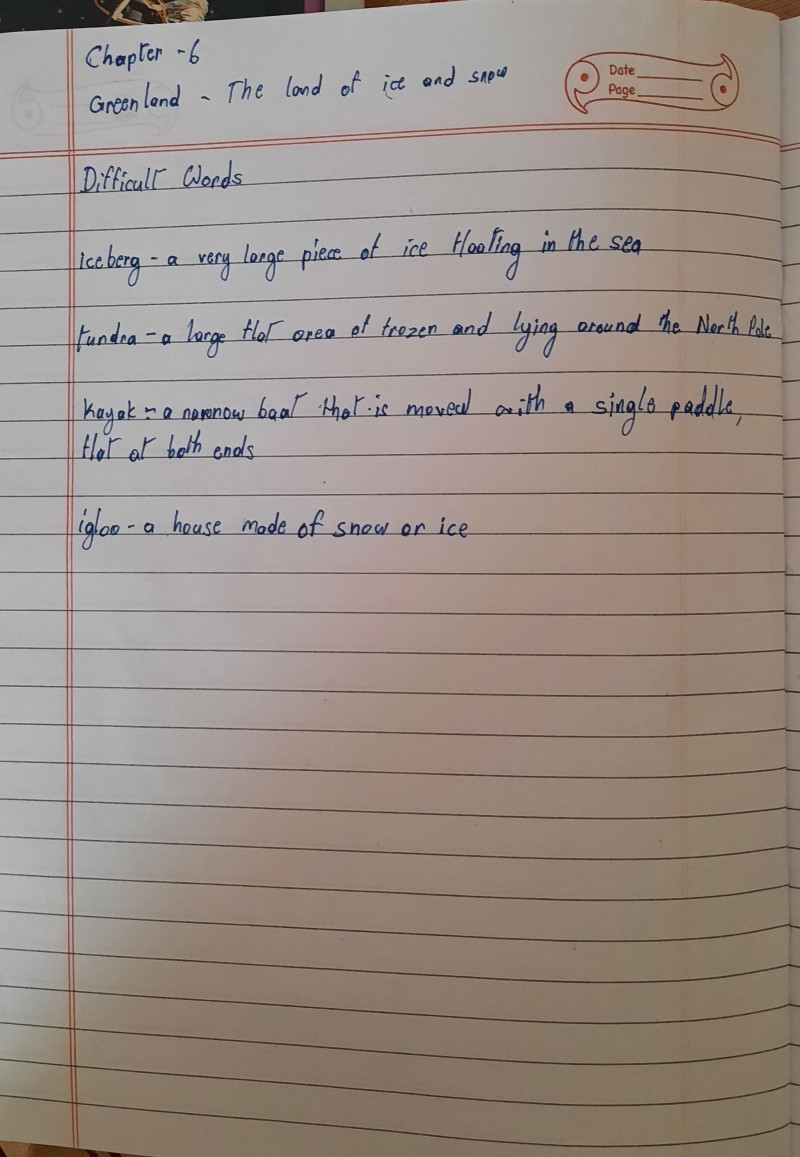 Chapter - 6
Greenland - The land of ice and snow
Date
Page
Difficult Words
iceberg - a very large piece of ice floating in the sea
tundra - a large flat area of frozen and lying around the North Pole
Kayak - a narrow boat that is moved with a single paddle,
flat at both ends
igloo - a house made of snow or ice